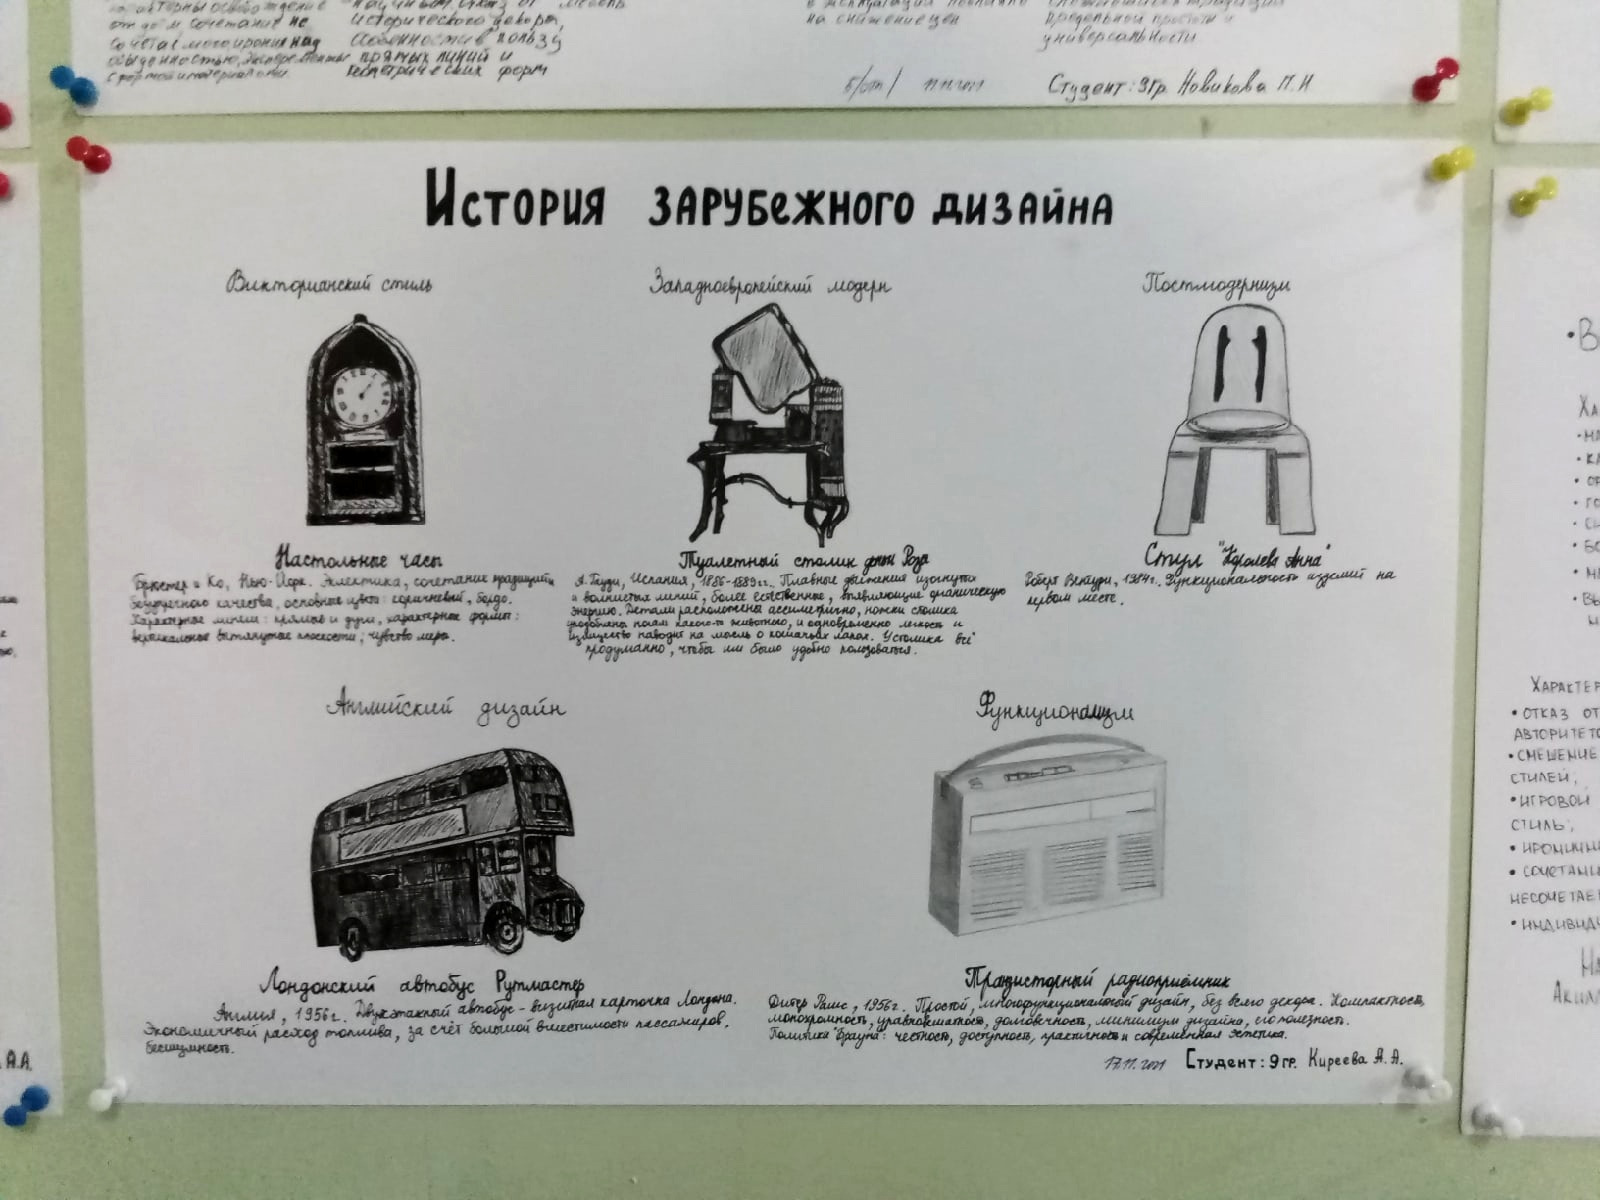 от догм сочетание не
исторического декора,
на снижение цен
предельной простоты и
универсальности
обыденностью, эксперименты
прямых линий и
с формой и материалами
геометрических форм
б/от/ 17.11.2021 Студент: 9гр. Новикова П.И
История зарубежного дизайна
Викторианский стиль
Западноевропейский модерн
Постмодернизм
Настольные часы
Бэкстер и Ко, Нью-Йорк. Эклектика, сочетание традиций и
безупречного качества, основные цвета: коричневый, бордо.
Характерные линии: прямые и дуги, характерные формы:
вертикальные вытянутые плоскости; чувство меры.
Туалетный столик доньи Роза
А. Гауди, Испания, 1886-1889гг. Плавные движения изогнутых
и волнистых линий, более естественные, выявляющие органическую
энергию. Детали расположены ассиметрично, ножки столика
уподоблены ногам какого-то животного, и одновременно легкость и
изящество наводит на мысль о кошачьих лапах. У столика всё
продуманно, чтобы им было удобно пользоваться.
Стул "Королева Анна"
Роберт Вентури, 1984г. Функциональность изделий на
первом месте.
Английский дизайн
Функционализм
Лондонский автобус Рутмастер
Англия, 1956г. Двухэтажный автобус - визитная карточка Лондона.
Экономичный расход топлива, за счёт большой вместимости пассажиров.
Бесшумность.
Транзисторный радиоприёмник
Дитер Рамс, 1956г. Простой, многофункциональный дизайн, без всего декора. Компактность,
монохромность, уравновешанность, долговечность, минимум дизайна, его полезность.
Политика "Брауна": честность, доступность, практичность и современная эстетика.
17.11.2021 Студент: 9гр. Киреева А.А.
А.А.
Характер
• отказ от
авторитето
• смешение
стилей;
• игровой
стиль;
• сочетани
несочетае
• индивид